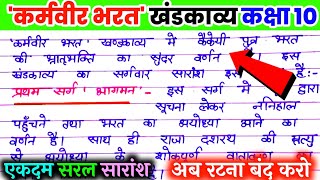 'कर्मवीर भरत' खंडकाव्य कक्षा 10
'कर्मवीर भरत' खण्डकाव्य में कैकेयी पुत्र भरत
की भ्रातृभक्ति का सुंदर वर्णन इस
खंडकाव्य का सर्गवार सारांश इस हैः-
प्रथम सर्ग 'आगमन'- इस सर्ग में द्वारा
सूचना लेकर ननिहाल
पहुँचने तथा भरत का अयोध्या आने का
वर्णन है। साथ ही राजा दशरथ की मृत्यु
से अयोध्या के शोकपूर्ण वातावरण का
एकदम सरल सारांश अब रटना बंद करो